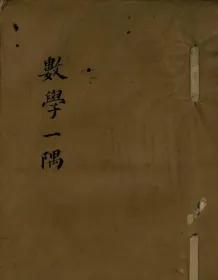 數學一隅